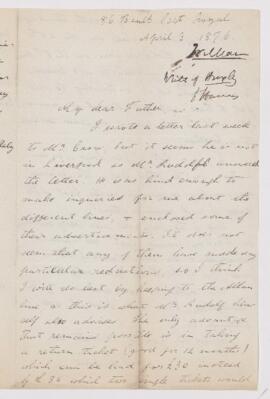 April 3 1876
William
My dear Father
I wrote a letter last week
to Mr. but it seems he is not
in Liverpool as Mr. Rudolph answered
the letter. He was kind enough to
make inquiries for me about the
different lines, & enclosed some of
their advertisements. It does not
seem that any of these lines make any
particular reduction, so I think
I will do best by keeping to the Allan
line & this is what Mr. Rudolf him
self also advises. The only advantage
that remains possible is in taking
a return ticket (good for 12 months)
which can be had for £30 instead
of £36 which two single tickets would